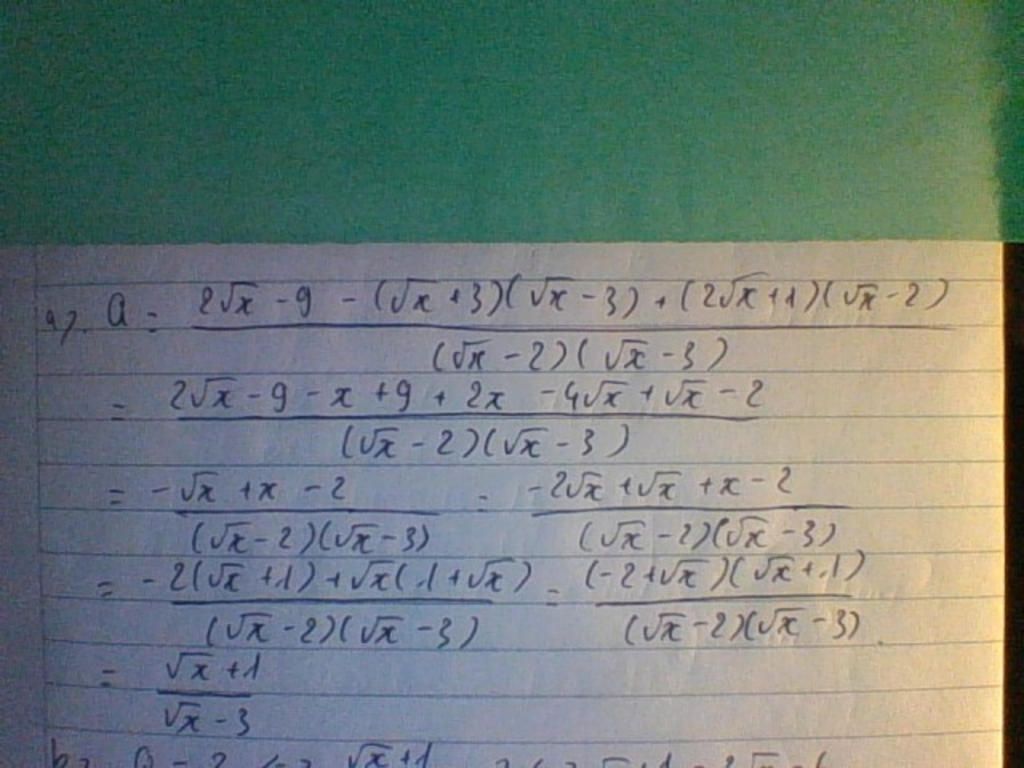 a). Q = (2√x - 9 - (√x + 3)(√x - 3) + (2√x + 1)(√x - 2)) / ((√x - 2)(√x - 3))
= (2√x - 9 - x + 9 + 2x - 4√x + √x - 2) / ((√x - 2)(√x - 3))
= (-√x + x - 2) / ((√x - 2)(√x - 3)) = (-2√x + √x + x - 2) / ((√x - 2)(√x - 3))
= (-2(√x + 1) + √x(1 + √x)) / ((√x - 2)(√x - 3)) = ((-2 + √x)(√x + 1)) / ((√x - 2)(√x - 3)).
= (√x + 1) / (√x - 3)